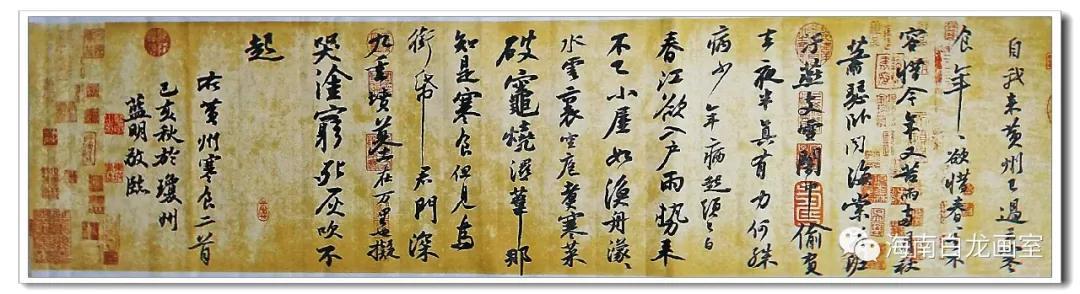 自我来黄州已過三寒
食年、欲惜春、不
容惜今年又苦雨两月秋
蕭瑟卧闻海棠
汙燕支雪闇中偷負
去夜半真有力何殊
病少年病起頭已白
春江欲入户雨勢来
不已小屋如漁舟濛、
水雲裏空庖煮寒菜
破竈燒濕葦那
知是寒食但見烏
銜帋君門深
九重墳墓在万里擬
哭塗窮死灰吹不
起
右黄州寒食二首
己亥秋於瓊州
藍明敬臨
海南白龙画室